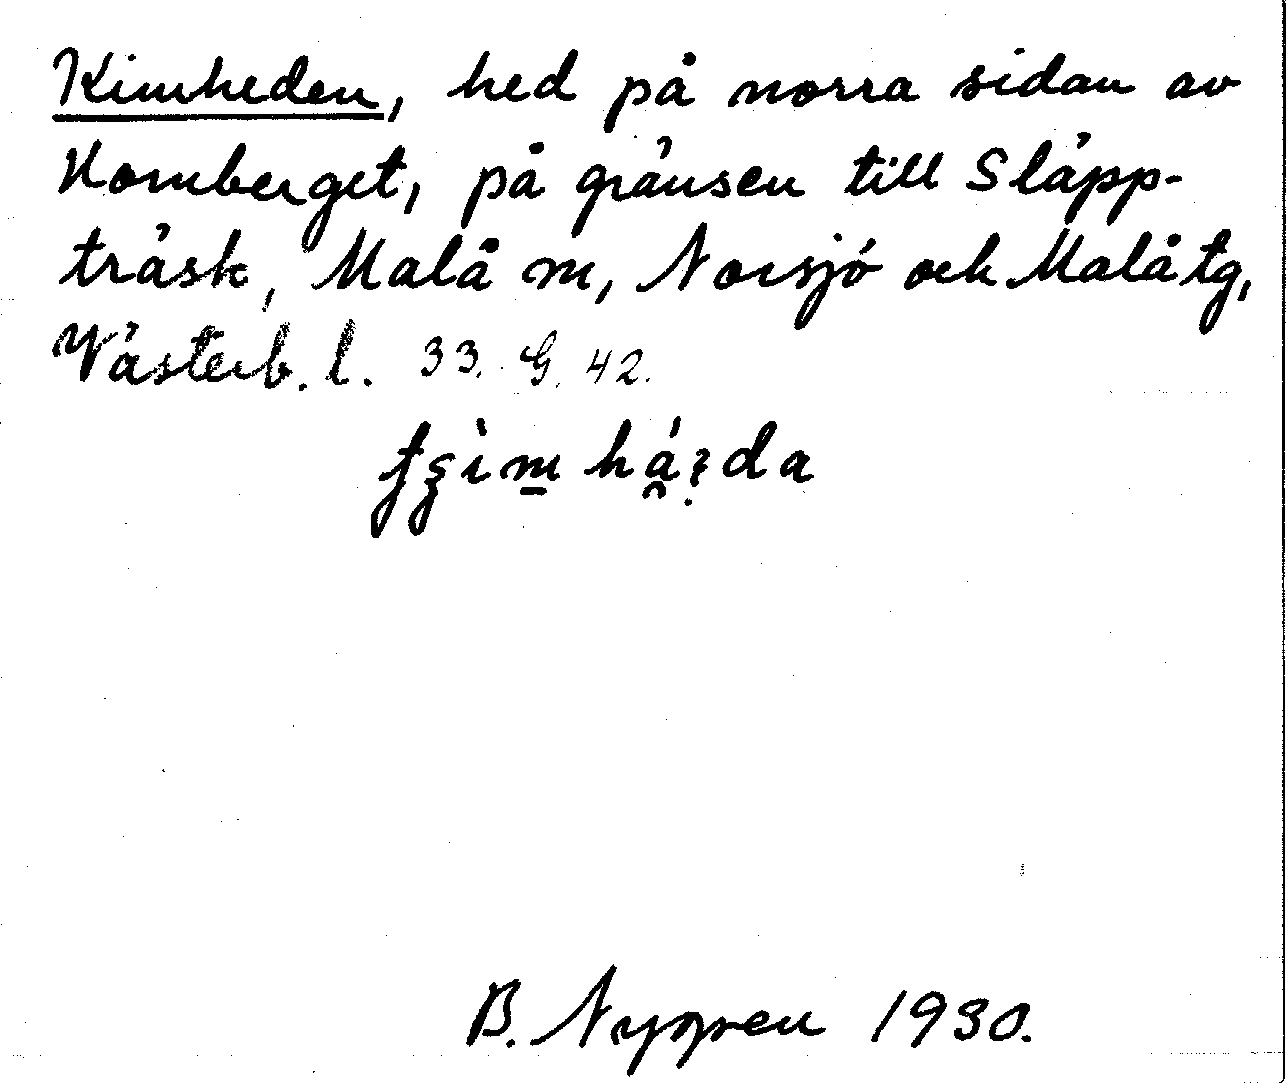 Kimheden, hed på norra sidan av
Homberget, på gränsen till Släpp-
träsk, Malå m, Norsjö och Malå tg,
Västerb. l. 33. G. 42.
B. Nygren 1930.